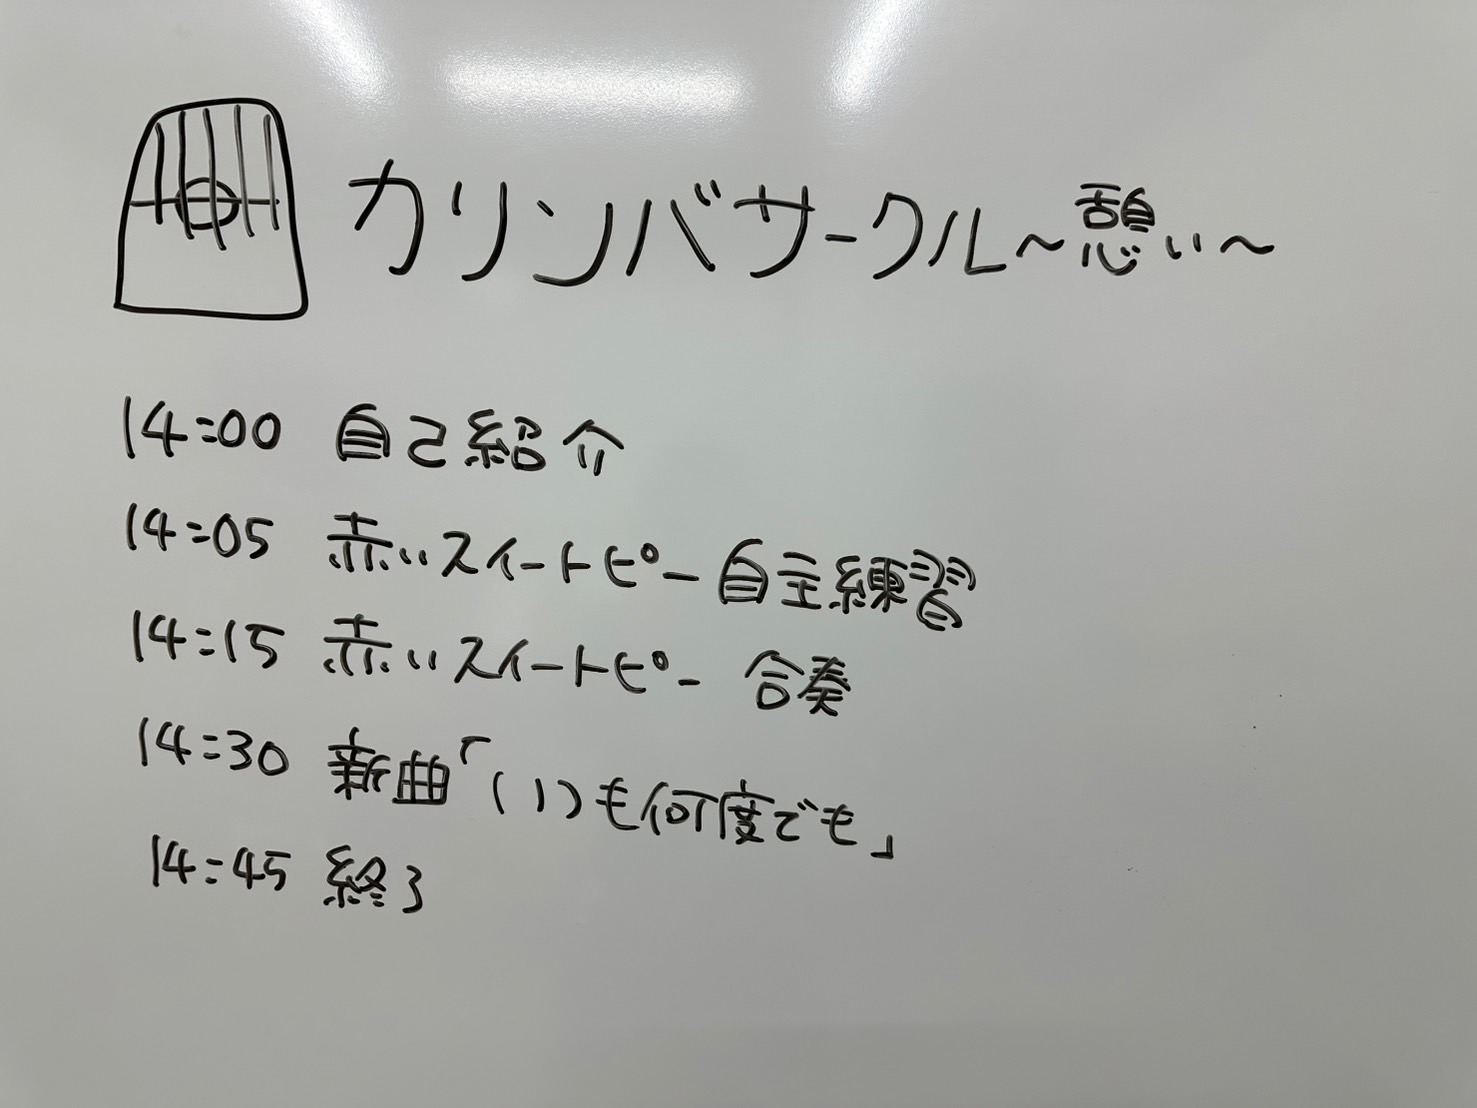 カリンバサークル～憩い～
14:00 自己紹介
14:05 赤いスイートピー自主練習
14:15 赤いスイートピー 合奏
14:30 新曲「いつも何度でも」
14:45 終了